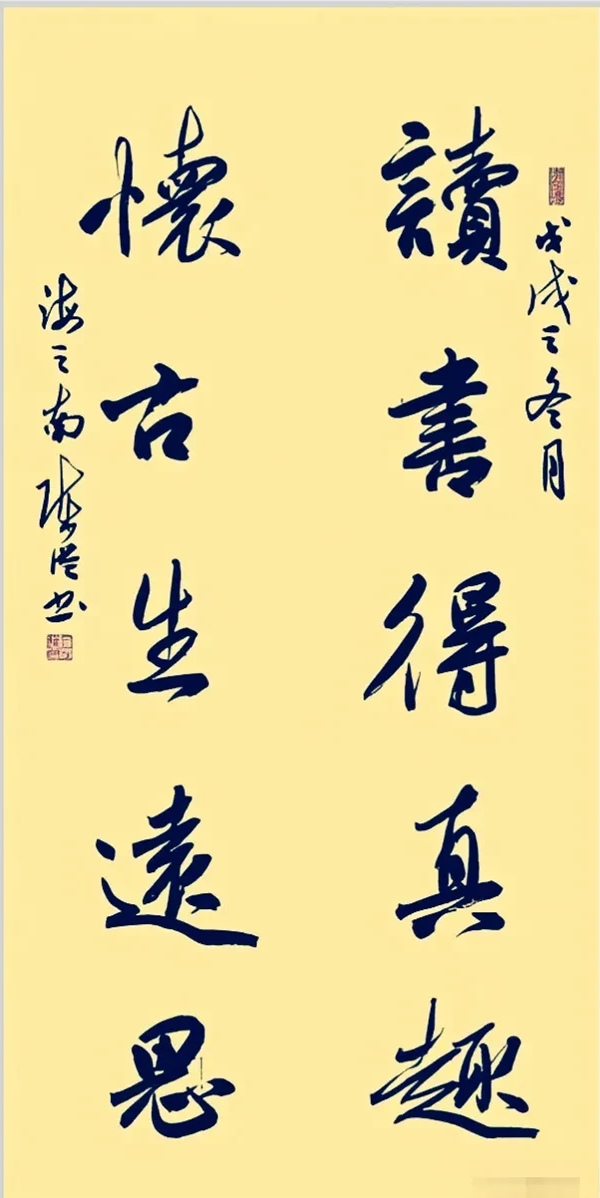 戊戌之冬月
讀書得真趣
懷古生遠思
海之南